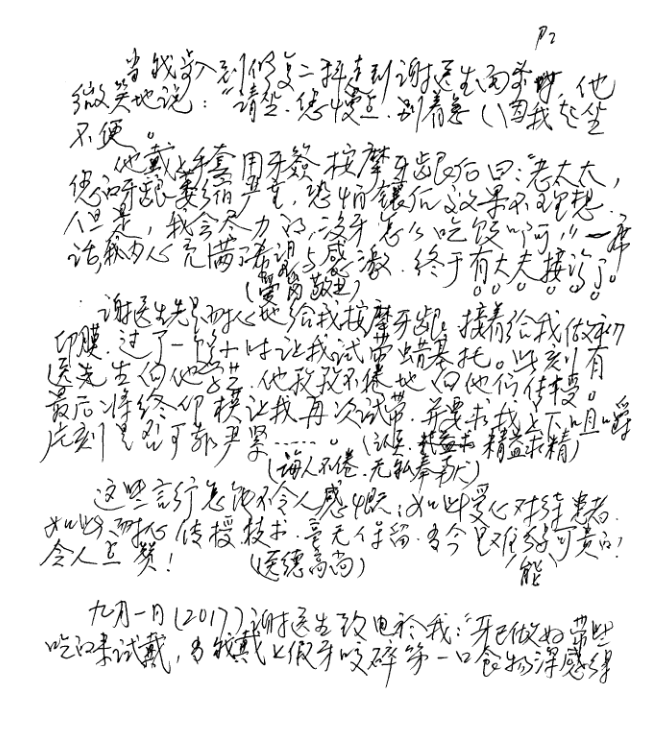 P2
当我步入到修复二科走到谢医生面前时,他
微笑地说:“请坐.您慢点.别着急(因我起坐
不便。
他戴上手套用牙签按摩牙龈后曰:“老太太,
您的牙龈萎缩严重,恐怕镶后效果不理想.
但是,我会尽力的,没牙怎么吃饭呵!”一席
话,我内心充满希望与感激.终于有大夫接诊了。
(爱岗敬业)
谢医生先是耐心地给我按摩牙龈.接着给我做初
印膜.过了一个小时让我试带蜡基托。此刻有
医先生向他学艺.他孜孜不倦地向他们传授。
最后将终印模让我再次试带.并要求我上下咀嚼
底刻是否可靠严紧……。(认真.精益求精)
(诲人不倦.无私奉献)
这些言行怎能不令人感慨:如此爱心对待患者.
如此耐心传授技术.毫无保留.当今是难能可贵的!
令人点赞!(医德高尚)
能
九月一日(2017)谢医生致电於我:“牙已做好带些
吃的来试戴,当我戴上假牙咬碎第一口食物深感得